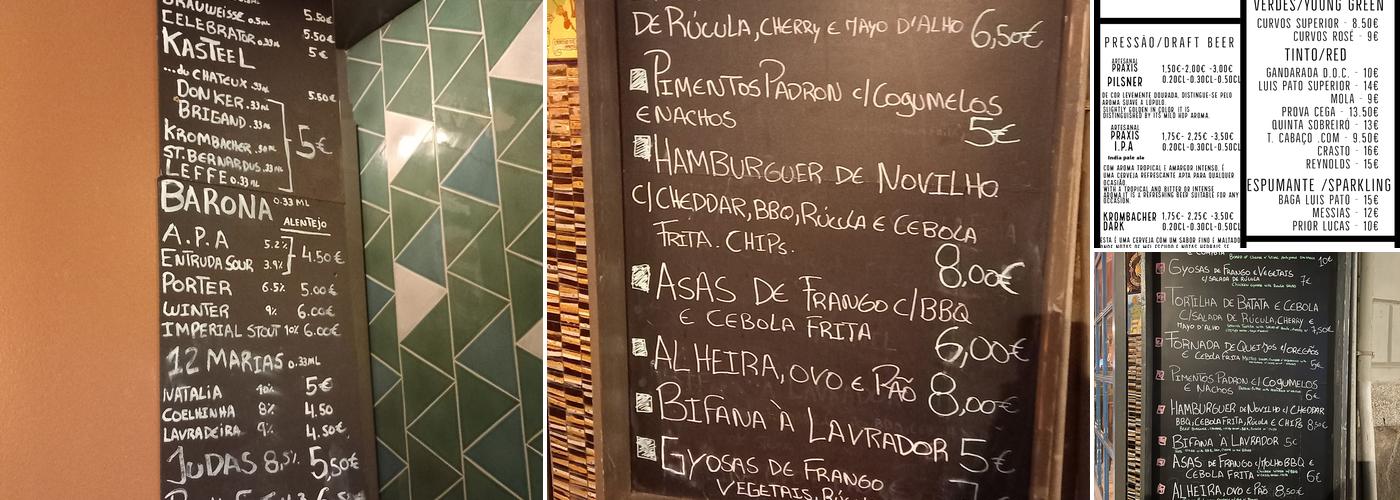 BRAUWEISSE 0.5ML 5.50€
CELEBRATOR 0.33ML 5.50€
KASTEEL 5€
...du CHATEUX .33ML 5.50€
DONKER .33ML
BRIGAND .33ML
KROMBACHER .50ML 5€
ST.BERNARDUS .33ML
LEFFE 0.33ML
BARONA 0.33ML
ALENTEJO
A.P.A 5.2%
ENTRUDA SOUR 3.9% 4.50€
PORTER 6.5% 5.00€
WINTER 9% 6.00€
IMPERIAL STOUT 10% 6.00€
12 MARIAS 0.33ML
NATALIA 10% 5€
COELHINHA 8% 4.50
LAVRADEIRA 9% 4.50€
JUDAS 8,5% 5,50€
DE RÚCULA, CHERRY E MAYO D'ALHO 6,50€
PIMENTOS PADRON c/COGUMELOS
E NACHOS 5€
HAMBURGUER DE NOVILHO
C/CHEDDAR, BBQ, RÚCULA E CEBOLA
FRITA. CHIPS. 8,00€
ASAS DE FRANGO C/BBQ
E CEBOLA FRITA 6,00€
ALHEIRA, OVO E PÃO 8,00€
BIFANA À LAVRADOR 5€
GYOSAS DE FRANGO
VEGETAIS,
PRESSÃO/DRAFT BEER
ARTESANAL
PRAXIS 1,50€-2.00€ -3.00€
PILSNER 0.20CL-0.30CL-0.50CL
DE COR LEVEMENTE DOURADA, DISTINGUE-SE PELO
AROMA SUAVE A LÚPULO.
SLIGHTLY GOLDEN IN COLOR, IT IS
DISTINGUISHED BY ITS MILD HOP AROMA.
ARTESANAL
PRAXIS 1,75€- 2,25€ -3,50€
I.P.A 0.20CL-0.30CL-0.50CL
India pale ale
COM AROMA TROPICAL E AMARGOR INTENSO, É
UMA CERVEJA REFRESCANTE APTA PARA QUALQUER
OCASIÃO.
WITH A TROPICAL AND BITTER OR INTENSE
AROMA IT IS A REFRESHING BEER SUITABLE FOR ANY
OCCASION.
KROMBACHER 1,75€- 2,25€ -3,50€
DARK 0.20CL-0.30CL-0.50CL
ESTA É UMA CERVEJA COM UM SABOR FINO E MALTADO
VERDES/YOUNG GREEN
CURVOS SUPERIOR - 8.50€
CURVOS ROSÉ - 9€
TINTO/RED
GANDARADA D.O.C. - 10€
LUIS PATO SUPERIOR - 14€
MOLA - 9€
PROVA CEGA - 13.50€
QUINTA SOBREIRO - 13€
T. CABAÇO .COM - 9.50€
CRASTO - 16€
REYNOLDS - 15€
ESPUMANTE /SPARKLING
BAGA LUIS PATO - 15€
MESSIAS - 12€
PRIOR LUCAS - 10€
10€
GYOSAS DE FRANGO E VEGETAIS
C/SALADA DE RÚCULA 7€
TORTILHA DE BATATA E CEBOLA
C/SALADA DE RÚCULA, CHERRY E
MAYO D'ALHO 7,50€
FORNADA DE QUEIJOS c/OREGÃOS
E CEBOLA FRITA 5€
PIMENTOS PADRON C/COGUMELOS
E NACHOS 6€
HAMBURGUER DE NOVILHO C/CHEDDAR
BBQ, CEBOLA FRITA, RÚCULA E CHIPS 8,50€
BIFANA À LAVRADOR 5€
ASAS DE FRANGO C/MOLHO BBQ E
CEBOLA FRITA 6€
ALHEIRA, OVO E PÃO 8,50€